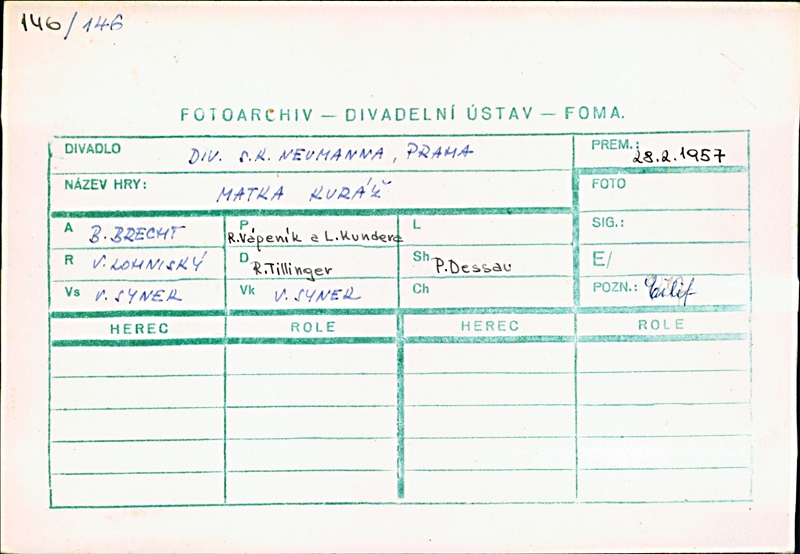 146/146
FOTOARCHIV — DIVADELNÍ ÚSTAV — FOMA.
DIVADLO DIV. S.K. NEUMANNA, PRAHA
PREM.: 28.2.1957
NÁZEV HRY: MATKA KURÁŽ
FOTO
A B. BRECHT P R.Vápeník a L.Kundera L
SIG.:
R V. LOMNISKÝ D R.Tillinger Sh P.Dessau
E/
Vs V. SYNEK Vk V. SYNEK Ch
POZN.: Eilif
HEREC ROLE HEREC ROLE